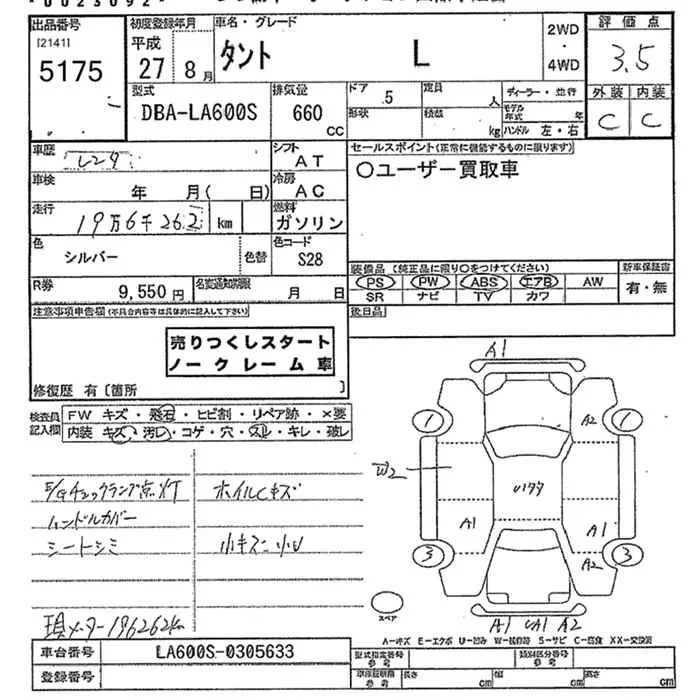 出品番号
[2141]
5175
初度登録年月
平成
27 8月
車名・グレード
タント L
2WD
・
4WD
評価点
3.5
外装 内装
C C
型式
DBA-LA600S
排気量
660
CC
ドア 5
形状
定員 人
積載 kg
ディーラー・並行
モデル年式 年
ハンドル 左・右
車歴 レンタ
シフト
AT
車検 年 月( 日)
冷房
AC
走行 19万6千262 km
燃料
ガソリン
色 シルバー 色替
色コード
S28
R券 9,550円
名変通知期限 月 日
セールスポイント(正常に機能するものに限ります)
○ユーザー買取車
装備品(純正品に限り○をつけてください)
PS PW ABS エアB AW
SR ナビ TV カワ
新車保証書
有・無
後日品
注意事項申告欄(不具合内容等は具体的に記入して下さい)
売りつくしスタート
ノークレーム車
修復歴 有〔箇所 〕
検査員記入欄
FW キズ・飛石・ヒビ割・リペア跡・×要
内装 キズ・汚レ・コゲ・穴・スレ・キレ・破レ
E/Gチェックランプ点灯
ハンドルカバー
シートシミ
現メーター196262km
ホイルCキズ
小キズ 小U
A1
1
A2
1
W2
A1
A1
3
A2
3
スペア
A1 UA1 A2
A−キズ E−エクボ U−凹み W−補修跡 S−サビ C−腐食 XX−交換済
車台番号 LA600S-0305633
登録番号
型式指定番号
参考
類別区分番号
参考
車庫証明用
参考
長さ cm
幅 cm
高さ cm